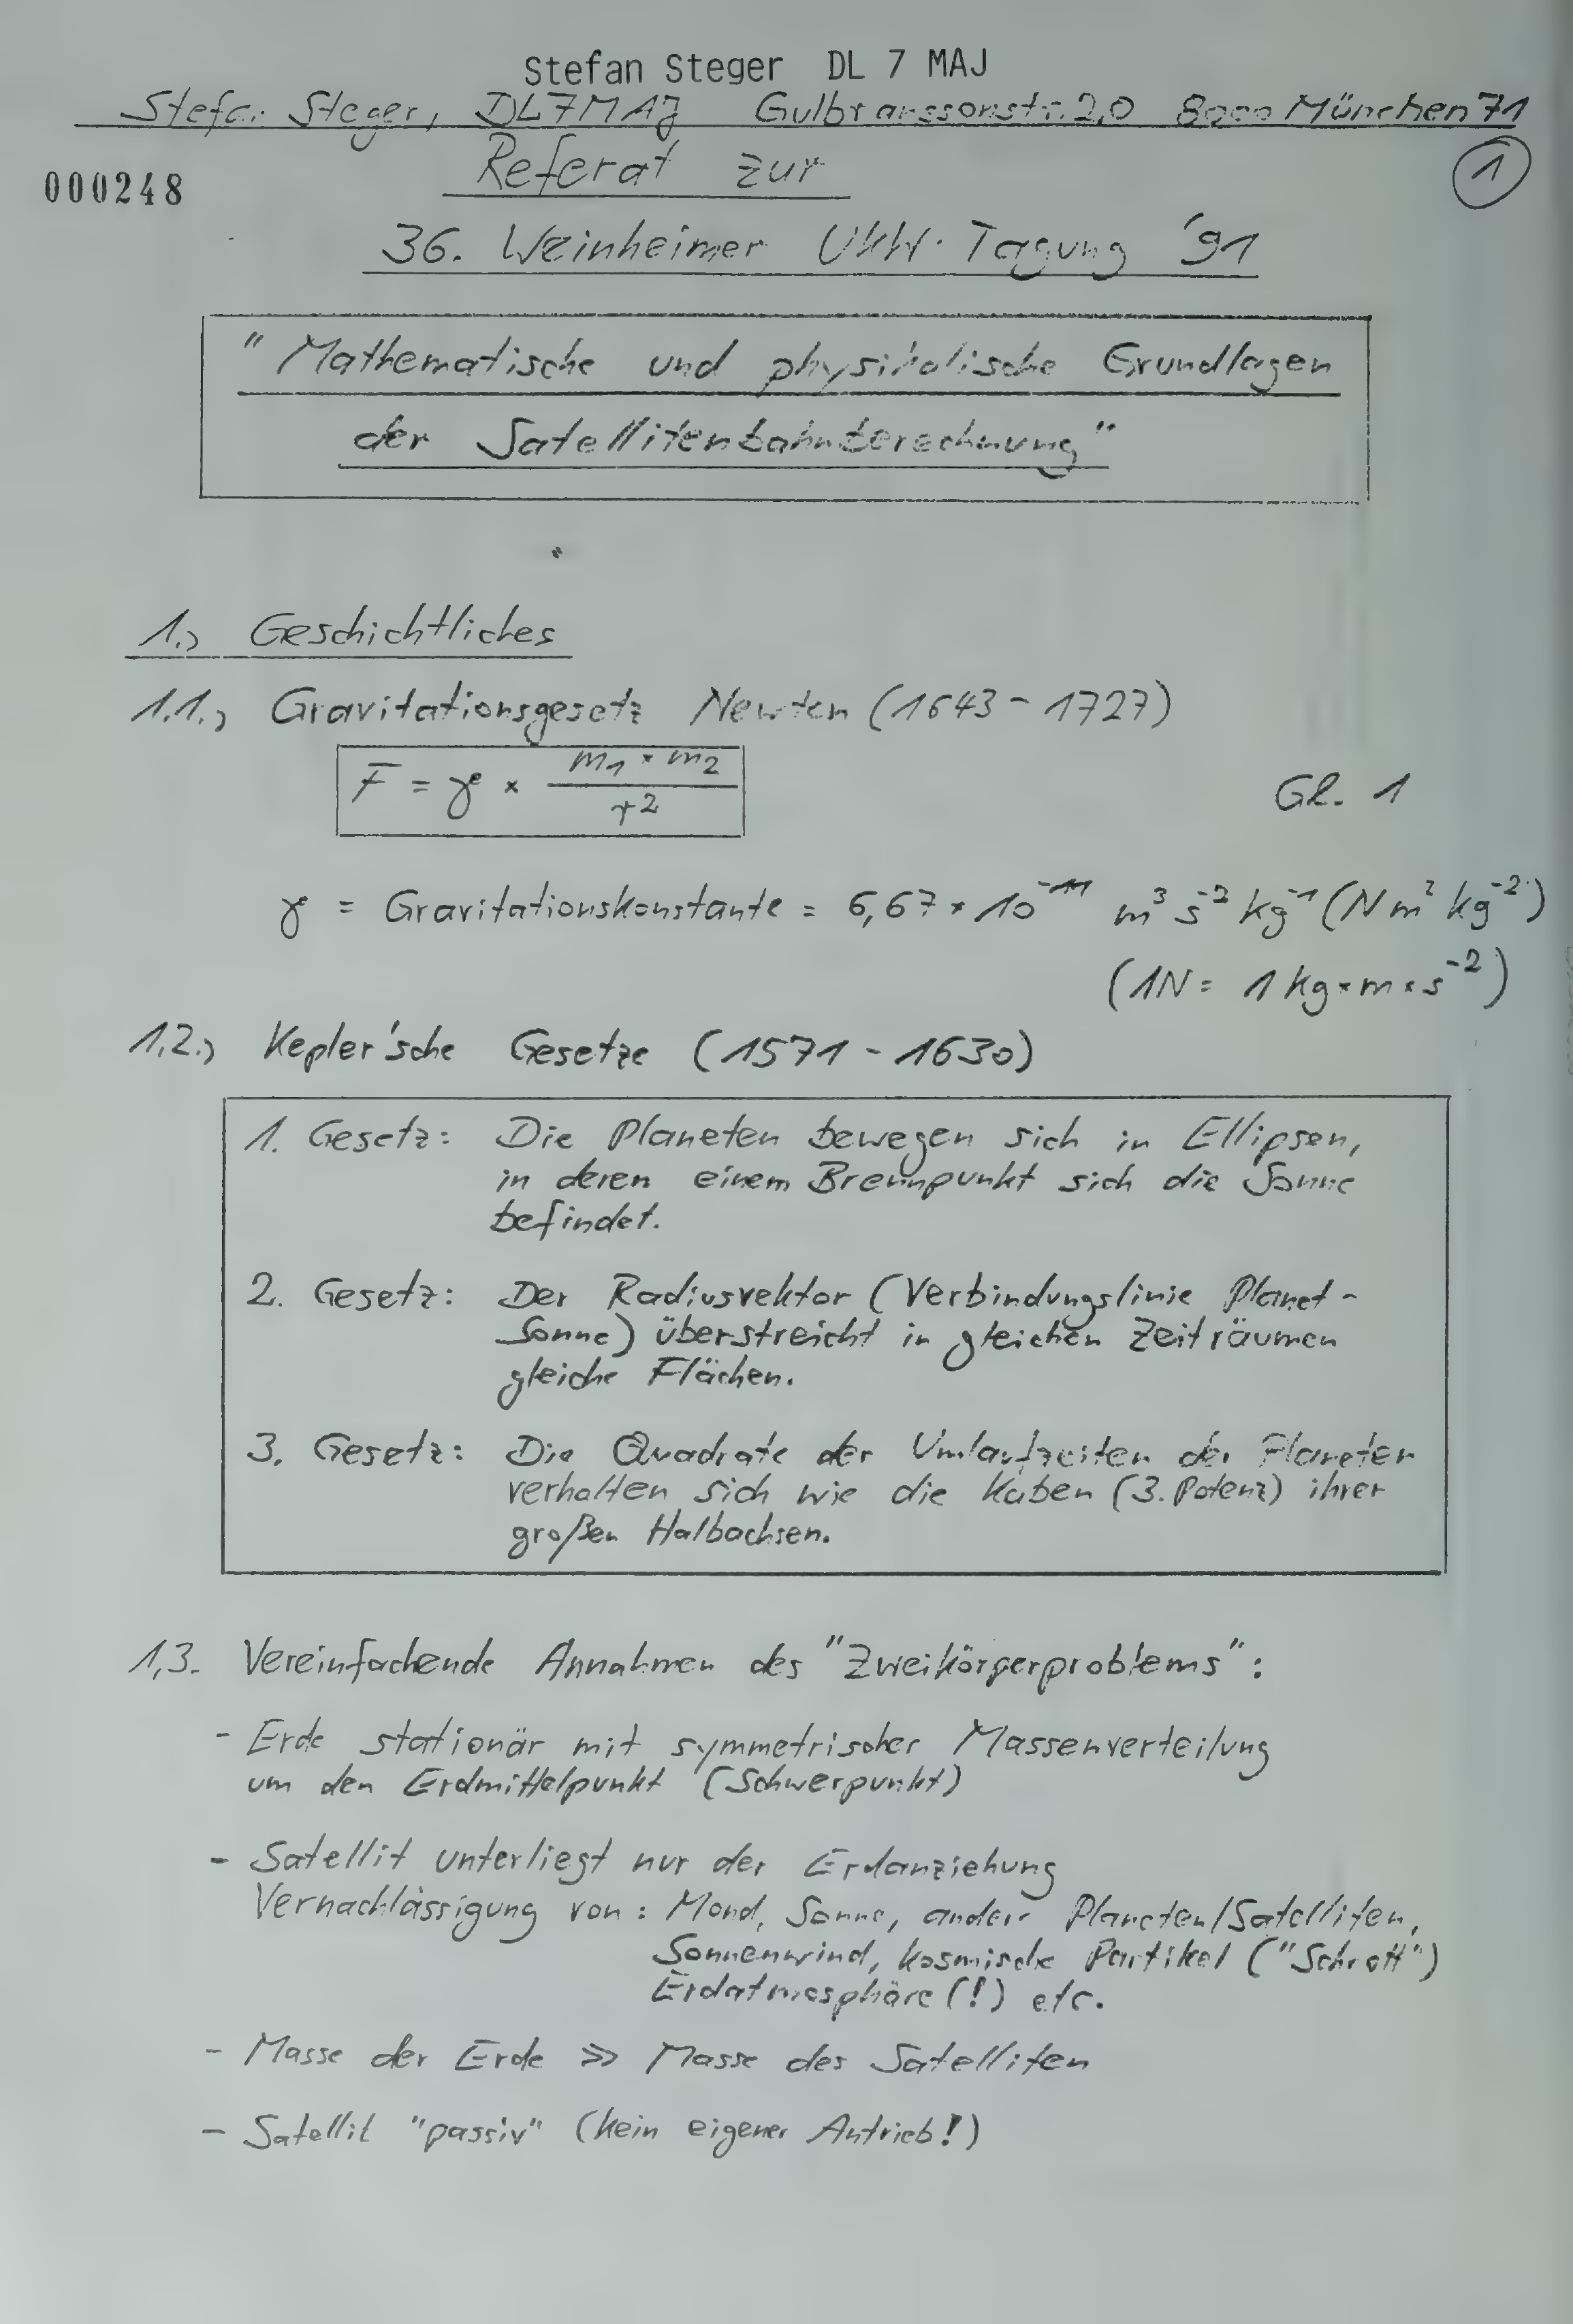 Stefan Steger DL 7 MAJ
Stefan Steger, DL7MAJ Gulbranssonstr. 20 8000 München 71
Referat zur
1
000248
36. Weinheimer UKW-Tagung '91
"Mathematische und physikalische Grundlagen
der Satellitenbahnberechnung"
1.) Geschichtliches
1.1.) Gravitationsgesetz Newton (1643 - 1727)
F = γ × (m₁ × m₂) / r²
Gl. 1
γ = Gravitationskonstante = 6,67 × 10⁻¹¹ m³ s⁻² kg⁻¹ (N m² kg⁻²)
(1N = 1 kg × m × s⁻²)
1.2.) Kepler'sche Gesetze (1571 - 1630)
1. Gesetz: Die Planeten bewegen sich in Ellipsen,
in deren einem Brennpunkt sich die Sonne
befindet.
2. Gesetz: Der Radiusvektor (Verbindungslinie Planet-
Sonne) überstreicht in gleichen Zeiträumen
gleiche Flächen.
3. Gesetz: Die Quadrate der Umlaufzeiten der Planeten
verhalten sich wie die Kuben (3. Potenz) ihrer
großen Halbachsen.
1.3. Vereinfachende Annahmen des "Zweikörperproblems":
- Erde stationär mit symmetrischer Massenverteilung
um den Erdmittelpunkt (Schwerpunkt)
- Satellit unterliegt nur der Erdanziehung
Vernachlässigung von: Mond, Sonne, andere Planeten/Satelliten,
Sonnenwind, kosmische Partikel ("Schrott")
Erdatmosphäre (!) etc.
- Masse der Erde >> Masse des Satelliten
- Satellit "passiv" (kein eigener Antrieb!)